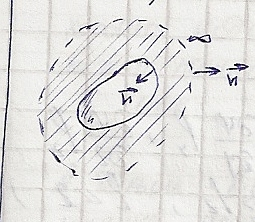 ∞
n⃗
n⃗